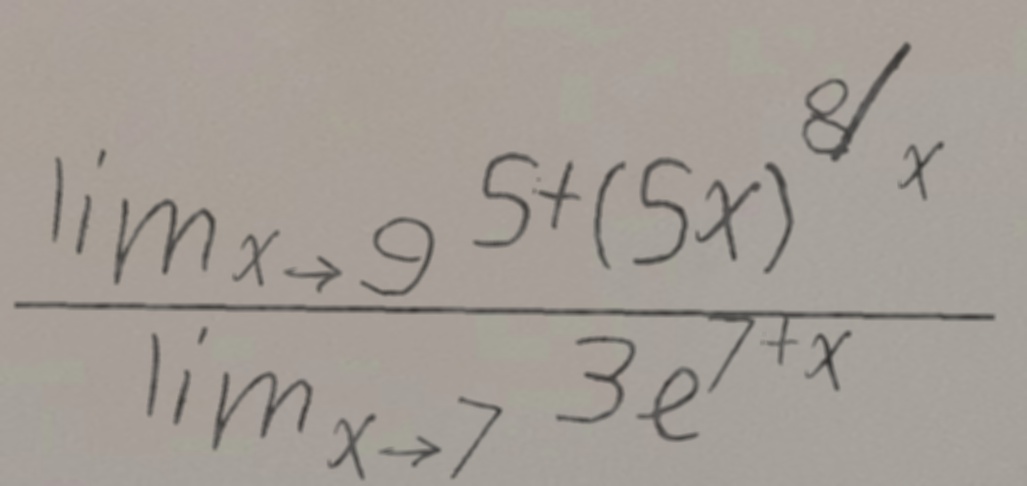 lim x→9 5+(5x)^8/x
lim x→7 3e^7+x